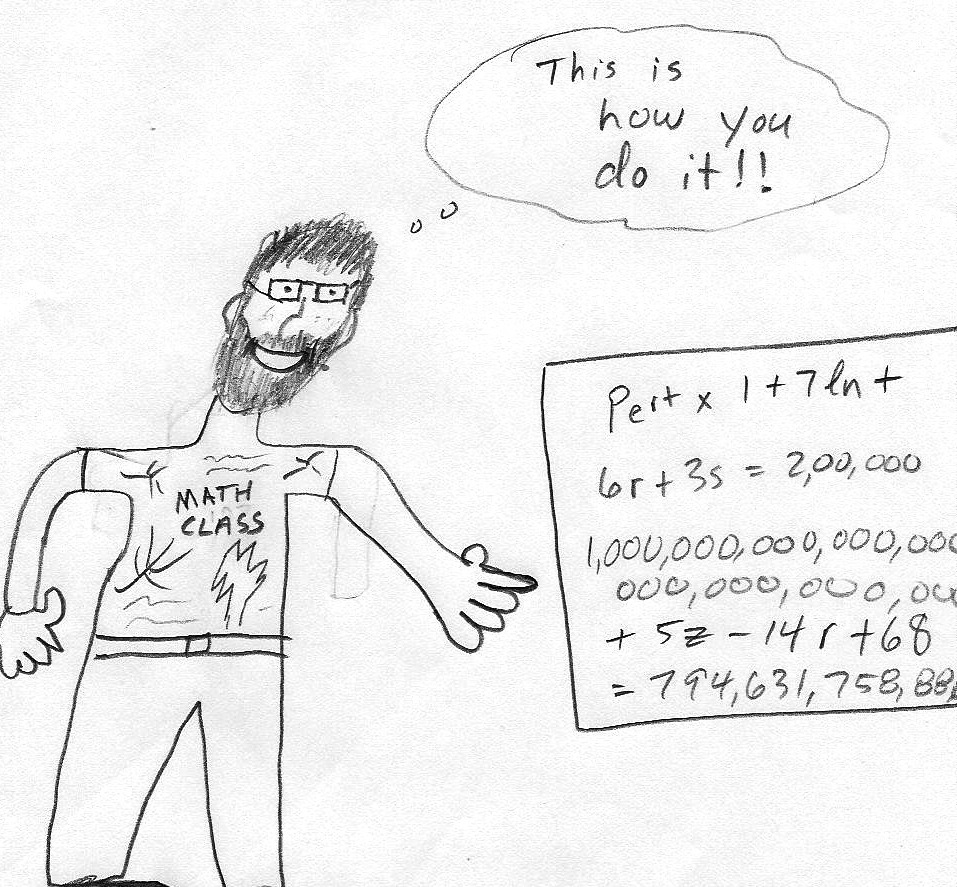 This is
how you
do it!!
MATH
CLASS
Pert x 1 + 7 ln t
6r + 3s = 2,00,000
1,000,000,000,000,000
000,000,000,00
+ 5z - 14r + 68
= 794,631,758,88